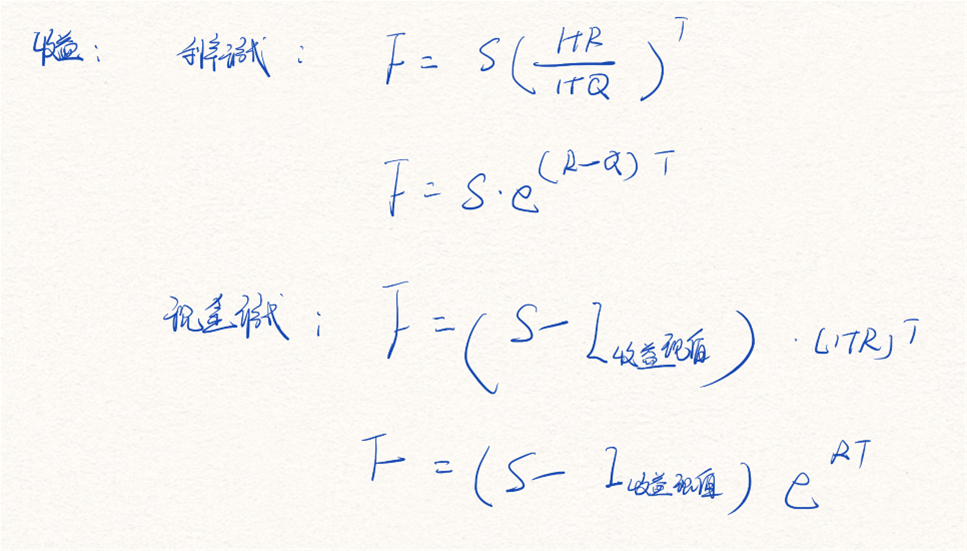 收益： 利率形式： F = S(\frac{1+R}{1+Q})^T
F = S·e^{(R-Q)T}
现金形式： F = (S - I_{收益现值})·(1+R)^T
F = (S - I_{收益现值})e^{RT}